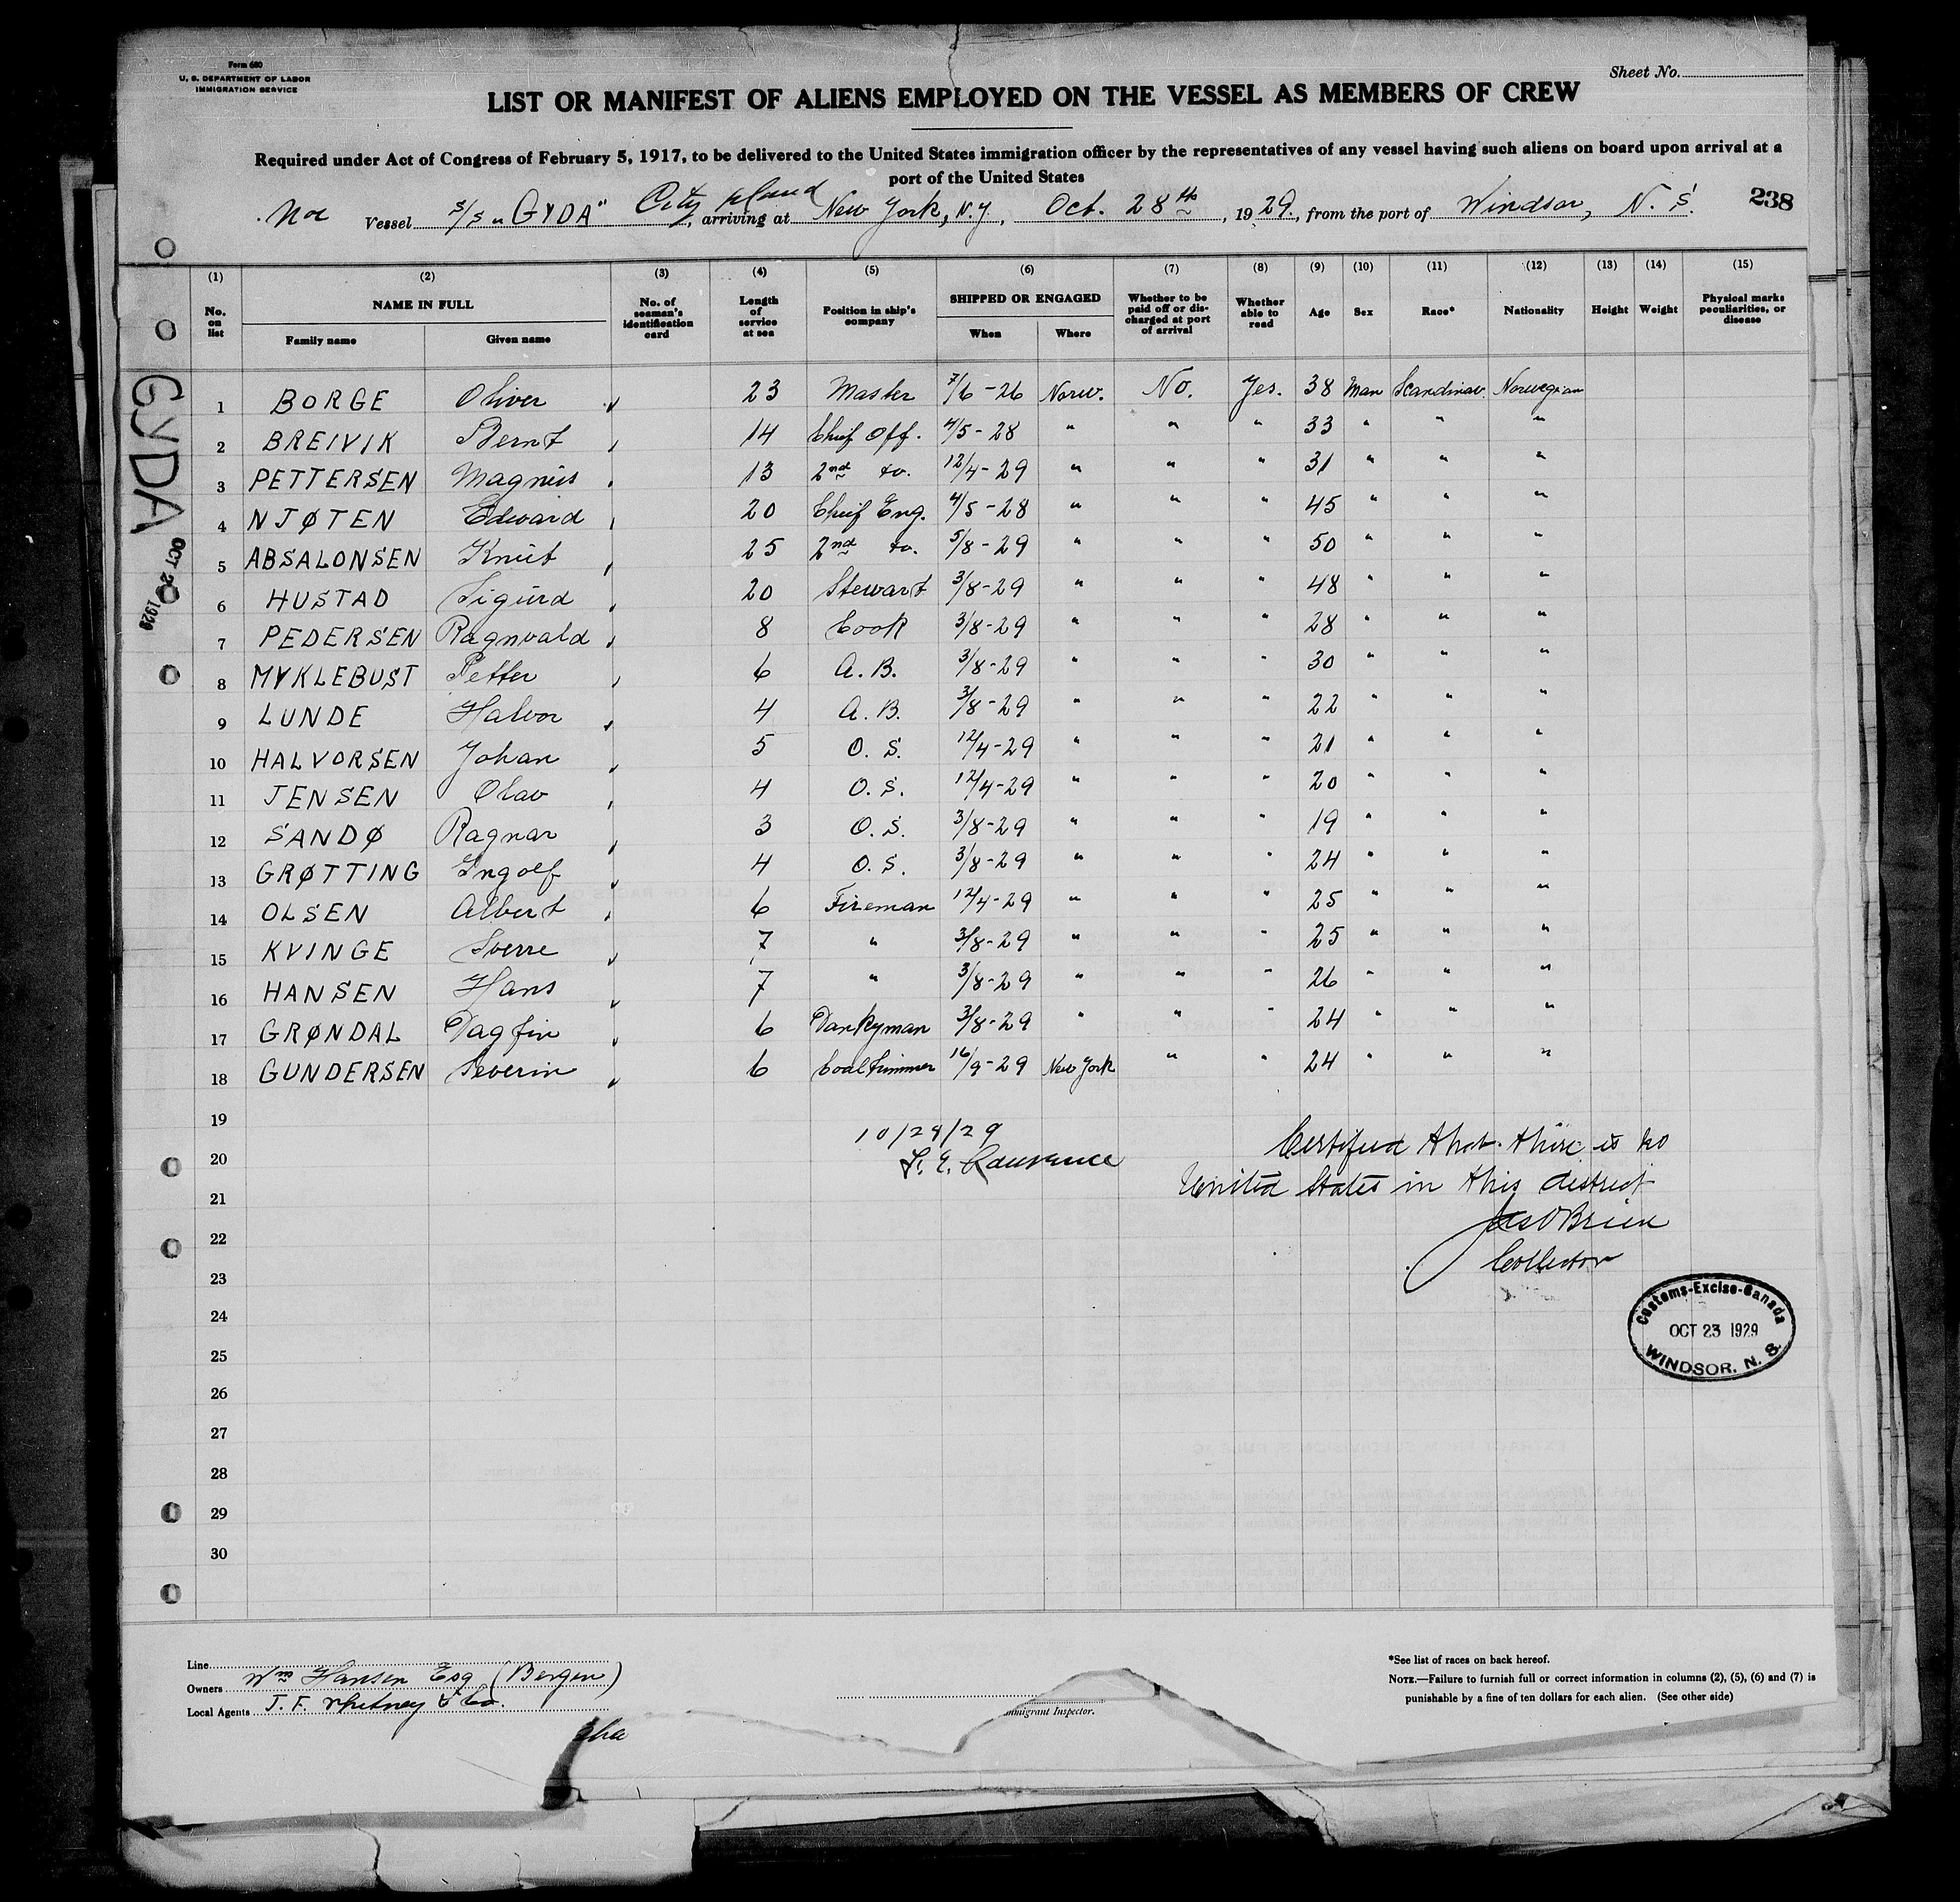 Form 680
U. S. DEPARTMENT OF LABOR
IMMIGRATION SERVICE
Sheet No.
LIST OR MANIFEST OF ALIENS EMPLOYED ON THE VESSEL AS MEMBERS OF CREW
Required under Act of Congress of February 5, 1917, to be delivered to the United States immigration officer by the representatives of any vessel having such aliens on board upon arrival at a
port of the United States
Nor Vessel S/S "GYDA" City Island, arriving at New York, N.Y., Oct. 28th, 1929, from the port of Windsor, N. S. 238
(1) (2) (3) (4) (5) (6) (7) (8) (9) (10) (11) (12) (13) (14) (15)
No. on list NAME IN FULL Family name Given name No. of seaman's identification card Length of service at sea Position in ship's company SHIPPED OR ENGAGED When Where Whether to be paid off or discharged at port of arrival Whether able to read Age Sex Race* Nationality Height Weight Physical marks peculiarities, or disease
GYDA
OCT 1929
1 BORGE Oliver 23 Master 7/6-26 Norw. No. Yes. 38 Man Scandinav. Norwegian
2 BREIVIK Bernt 14 Chief Off. 4/5-28 " " " 33 " " "
3 PETTERSEN Magnus 13 2nd do. 12/4-29 " " " 31 " " "
4 NJØTEN Edward 20 Chief Eng. 4/5-28 " " " 45 " " "
5 ABSALONSEN Knut 25 2nd do. 5/8-29 " " " 50 " " "
6 HUSTAD Sigurd 20 Stewart 3/8-29 " " " 48 " " "
7 PEDERSEN Ragnvald 8 Cook 3/8-29 " " " 28 " " "
8 MYKLEBUST Petter 6 A. B. 3/8-29 " " " 30 " " "
9 LUNDE Halvor 4 A. B. 3/8-29 " " " 22 " " "
10 HALVORSEN Johan 5 O. S. 12/4-29 " " " 21 " " "
11 JENSEN Olav 4 O. S. 12/4-29 " " " 20 " " "
12 SANDØ Ragnar 3 O. S. 3/8-29 " " " 19 " " "
13 GRØTTING Ingolf 4 O. S. 3/8-29 " " " 24 " " "
14 OLSEN Albert 6 Fireman 12/4-29 " " " 25 " " "
15 KVINGE Sverre 7 " 3/8-29 " " " 25 " " "
16 HANSEN Hans 7 " 3/8-29 " " " 26 " " "
17 GRØNDAL Dagfin 6 Dankyman 3/8-29 " " " 24 " " "
18 GUNDERSEN Severin 6 Coaltrimmer 16/9-29 New York " " 24 " " "
19
20
21
22
23
24
25
26
27
28
29
30
10/28/29
Certified that there is no
United States in this district
Jas O'Brien
Collector
Customs-Excise-Canada
OCT 23 1929
WINDSOR, N. S.
Line
Owners Wm Hansen Esq (Bergen)
Local Agents J. F. Whitney & Co.
Immigrant Inspector.
*See list of races on back hereof.
NOTE.—Failure to furnish full or correct information in columns (2), (5), (6) and (7) is
punishable by a fine of ten dollars for each alien. (See other side)